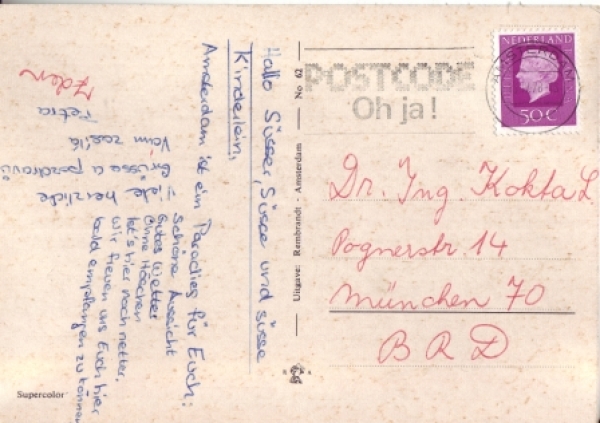 Hallo Süsser, Süsse und süsse
Kinderlein,
Amsterdam ist ein Paradies für Euch:
Schöne Aussicht
Gutes Wetter
Ohne Höschen
ist's hier noch netter.
Wir freuen uns Euch hier
bald empfangen zu können
Viele herzliche
Grüsse a pozdravů
Vám zasílá
Petra
Zden
Uitgave: Rembrandt - Amsterdam
No 62
POSTCODE
Oh ja!
NEDERLAND
50 c
AMSTERDAM
Dr. Ing. Kokta L
Pognerstr. 14
München 70
BRD
Supercolor